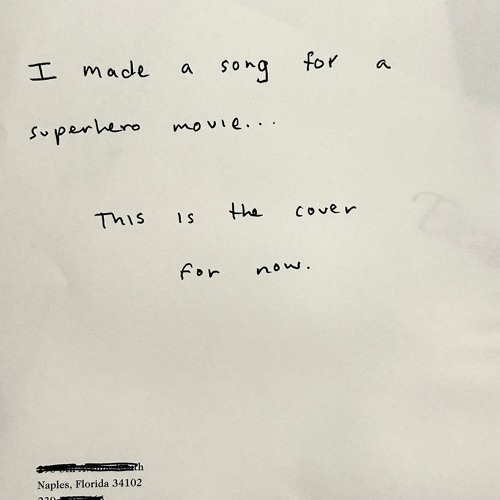 I made a song for a
superhero movie...
This is the cover
for now.
Naples, Florida 34102